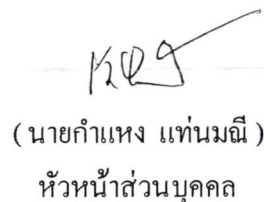 (นายกำแหง แท่นมณี)
หัวหน้าส่วนบุคคล